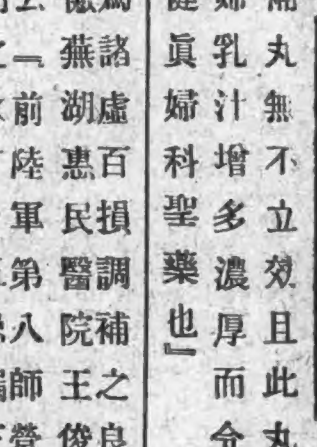 丸無不立效且此丸
婦乳汁增多濃厚而令
眞婦科聖藥也』
諸虛百損調補之良
蕪湖惠民醫院王俊
『前陸軍第八師營